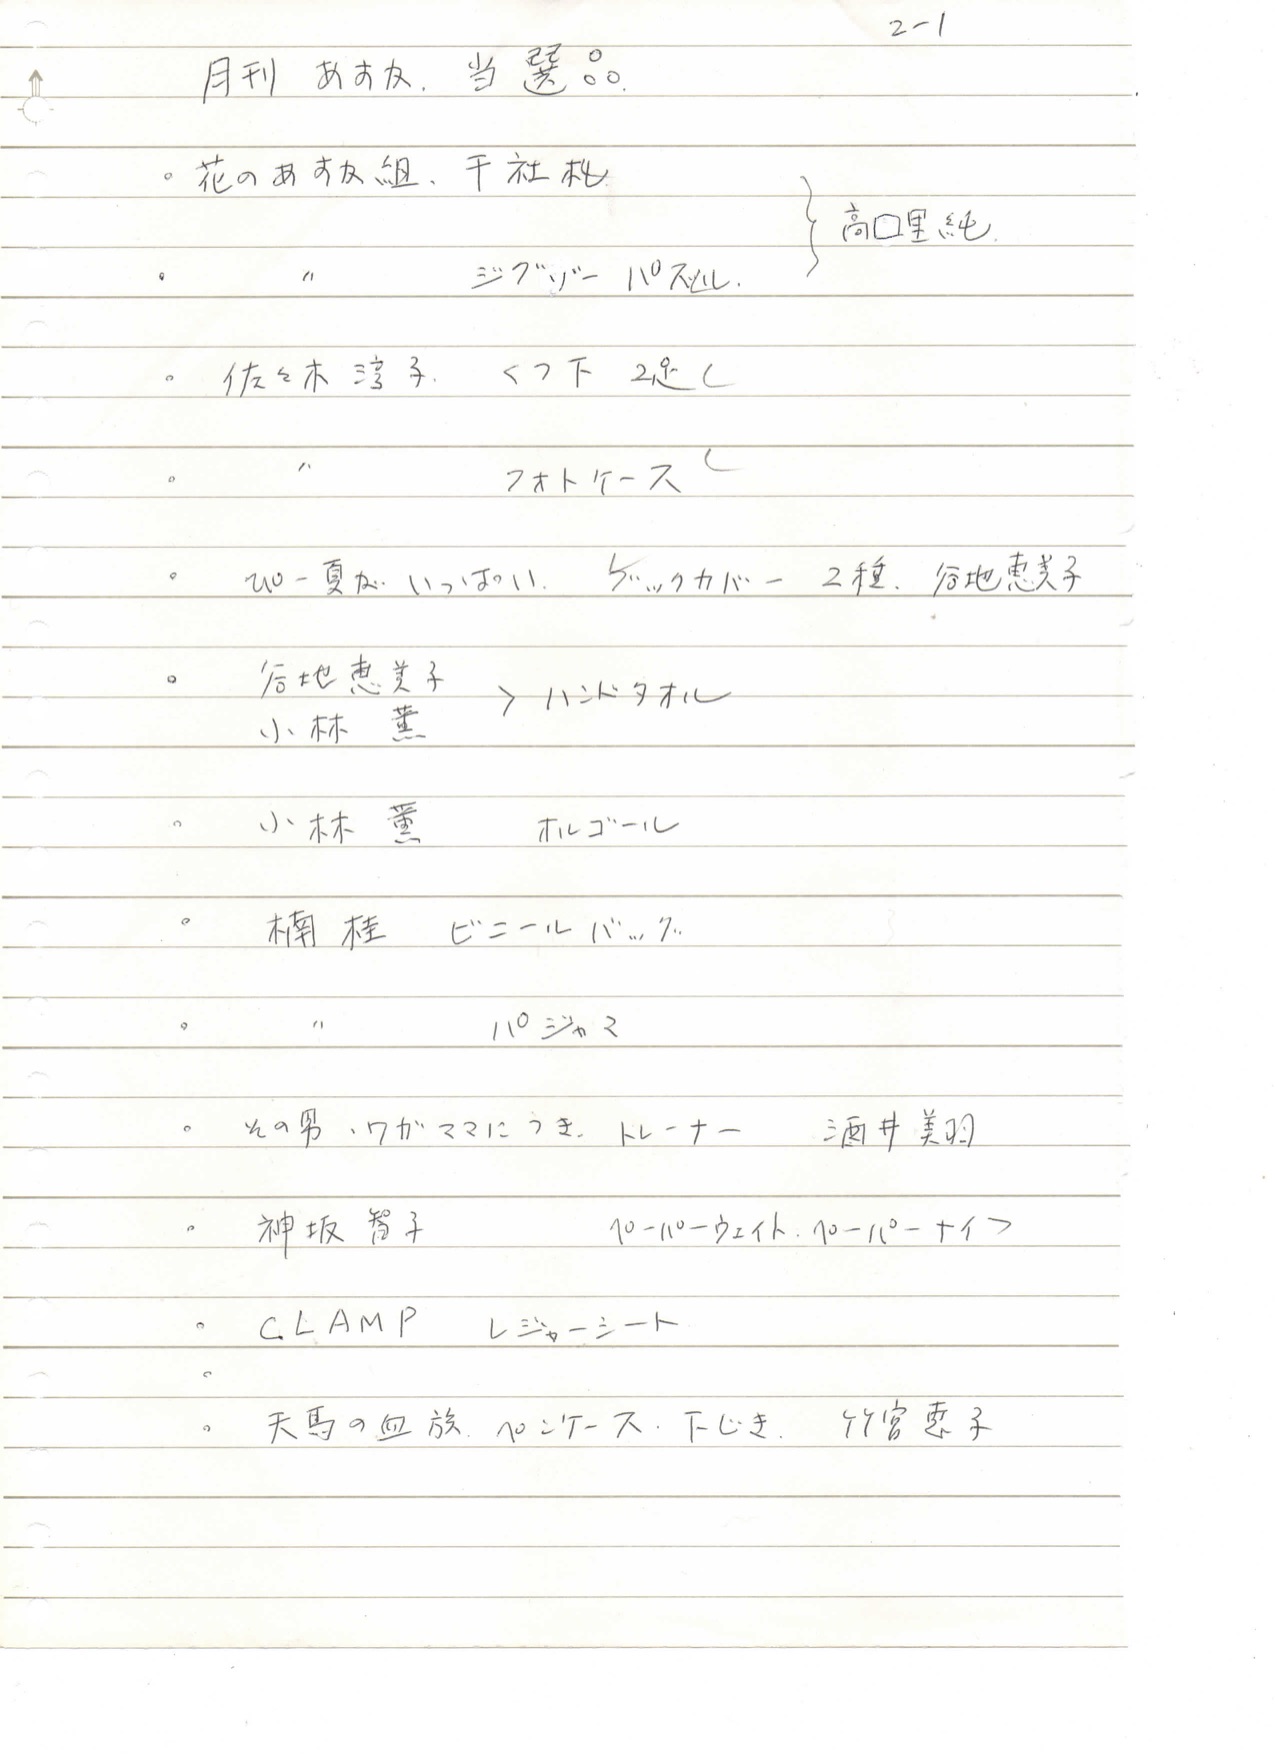 2-1
月刊 あすか. 当選品.
。花のあすか組、千社札
。 〃 ジグソーパズル.
高口里純.
。佐々木淳子. くつ下 2足
。 〃 フォトケース
。ぴー夏がいっぱい. ブックカバー 2種. 谷地恵美子
。谷地恵美子
小林 薫 > ハンドタオル
。小林 薫 オルゴール
。楠 桂 ビニールバッグ
。 〃 パジャマ
。その男・ワガママにつき. トレーナー 酒井美羽
。神坂智子 ペーパーウェイト. ペーパーナイフ
。CLAMP レジャーシート
。
。天馬の血族. ペンケース. 下じき. 竹宮恵子